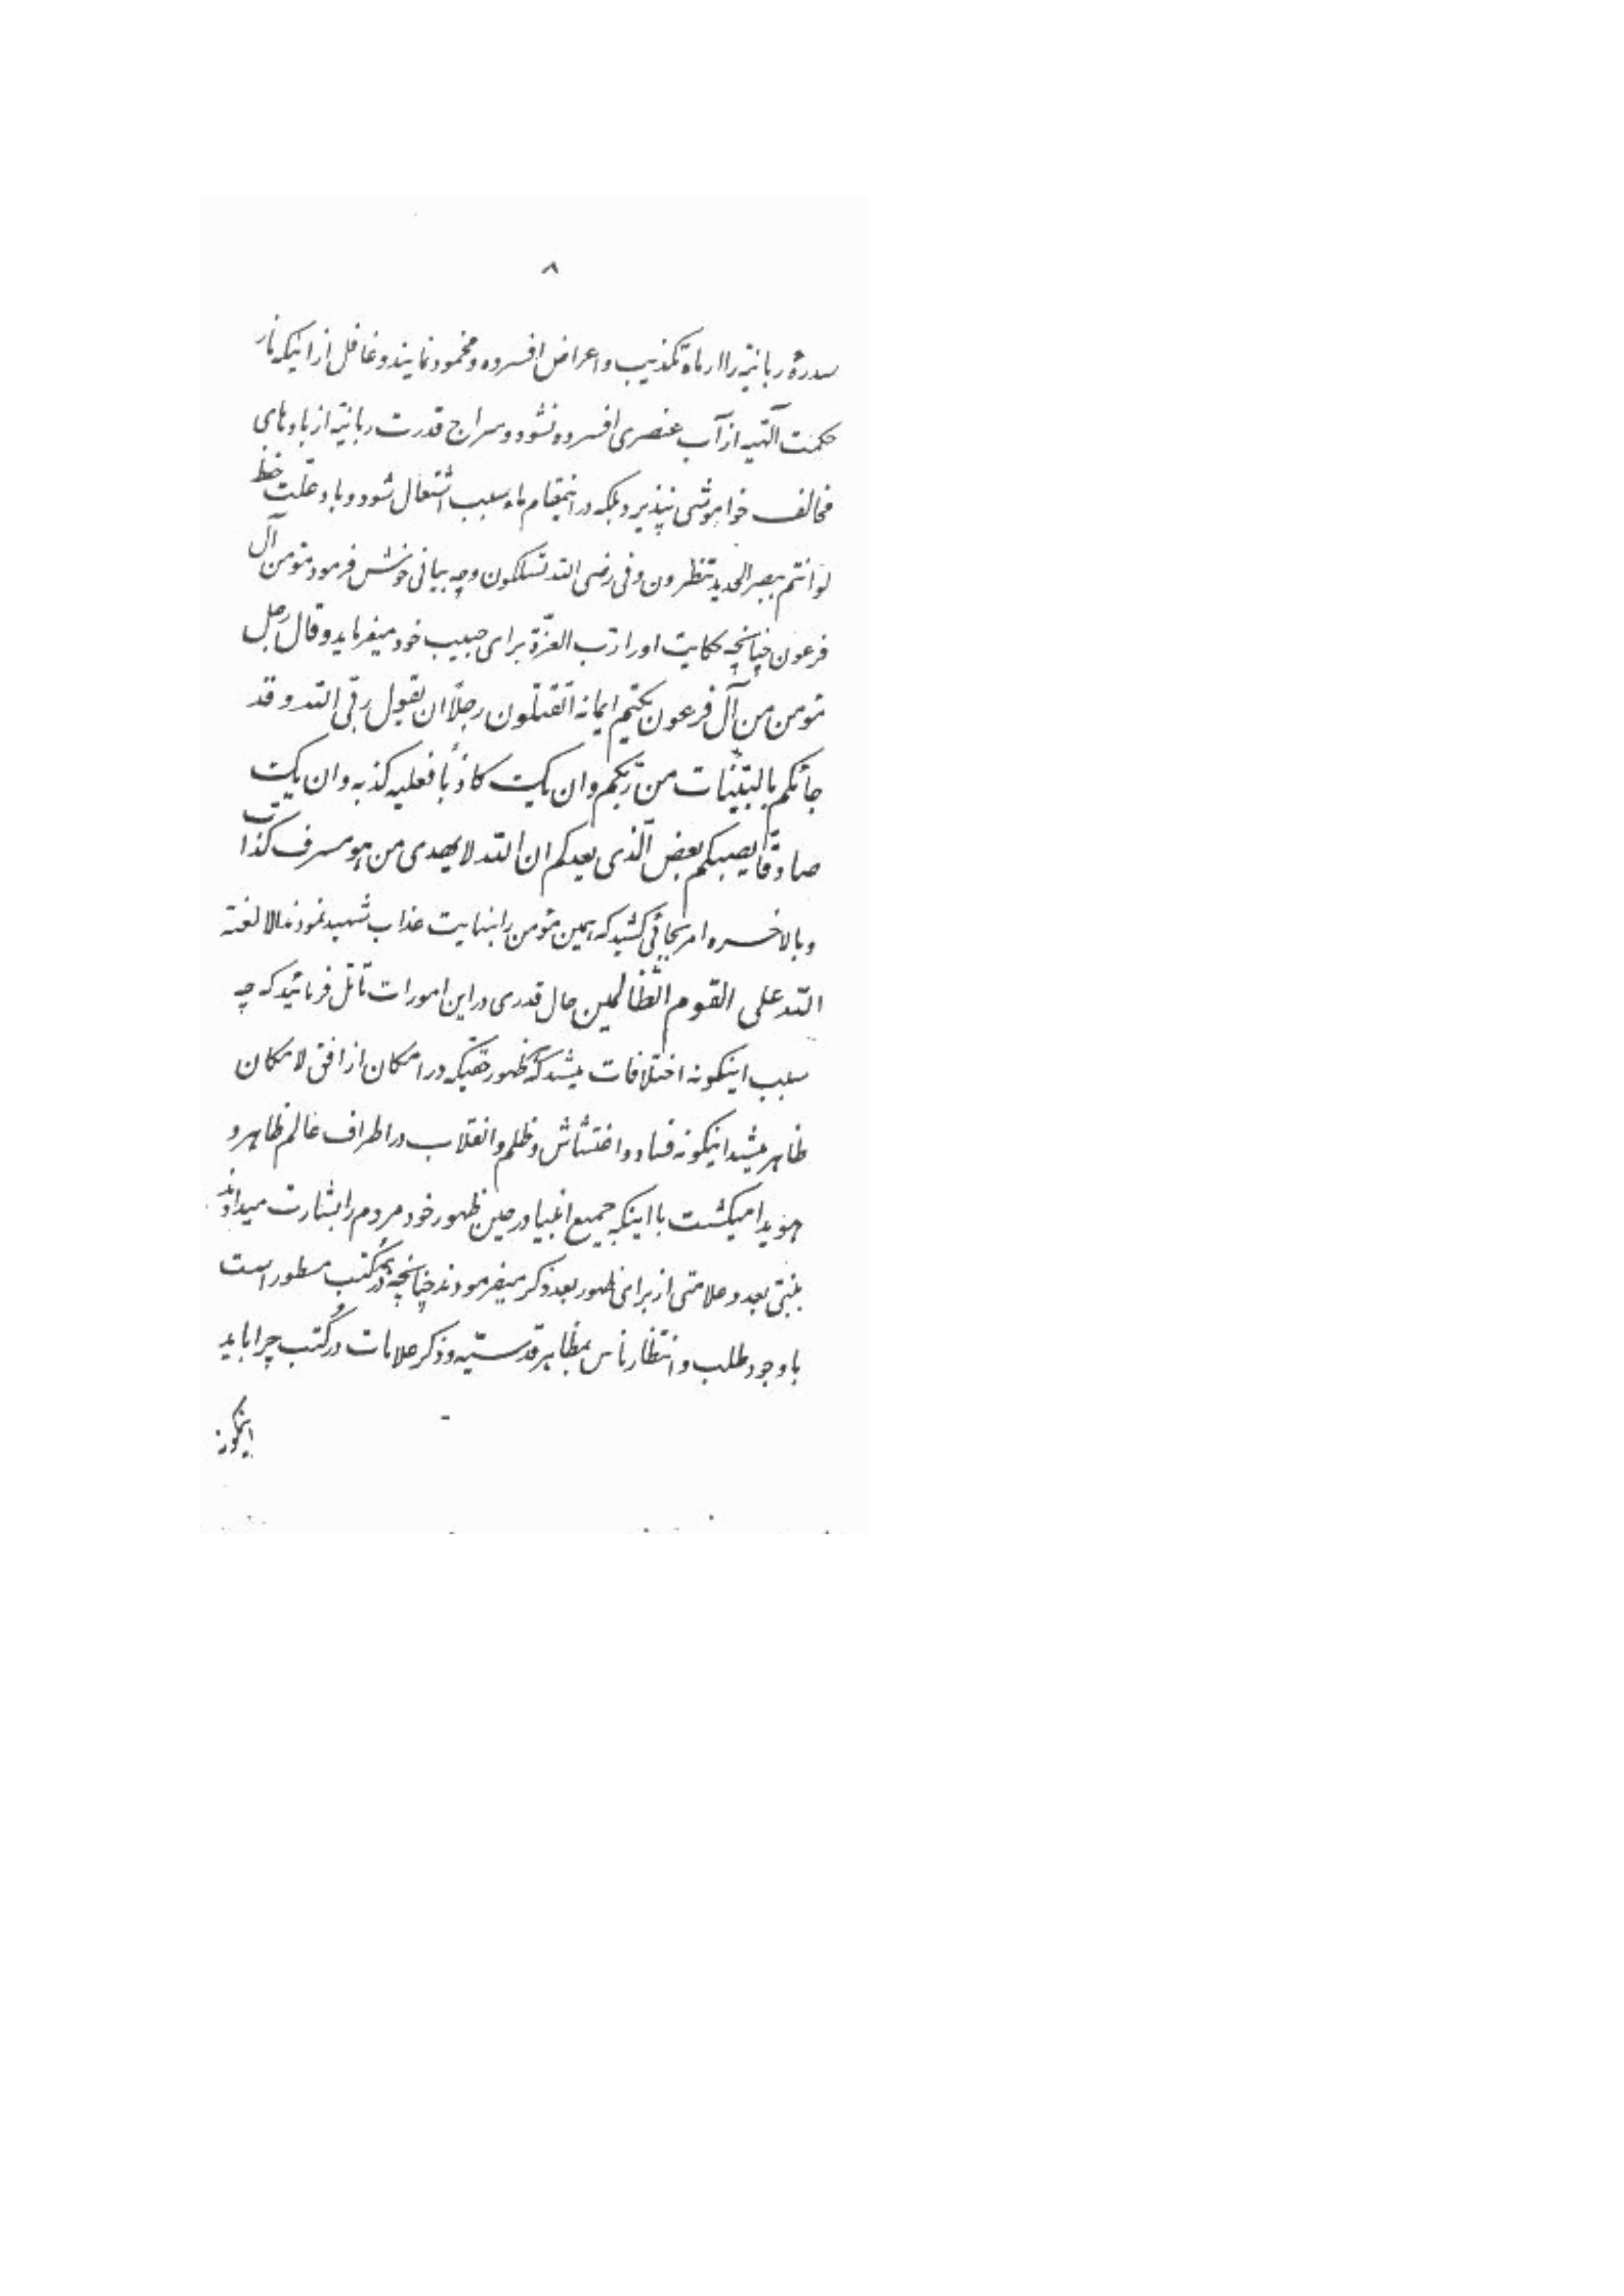 ۸
سدرهٔ ربانیّه را از ماء تکذیب و اعراض افسرده و مخمود نمایند و غافل از اینکه نار
حکمت الهیه از آب عنصری افسرده نشود و سراج قدرت ربانیّه از بادهای
مخالف خواموشی نپذیرد بلکه در اینمقام ماء سبب اشتعال شود و باد علّت حفظ
لو انتم ببصر الحدید تنظرون و فی رضی الله تسلکون و چه بیانی خوش فرمود مؤمن آل
فرعون چنانچه حکایت او را ربّ العزّة برای حبیب خود میفرماید و قال رجل
مؤمن من آل فرعون یکتم ایمانه أتقتلون رجلاً ان یقول ربّی الله و قد
جائکم بالبیّنات من ربّکم و ان یک کاذباً فعلیه کذبه و ان یک
صادقاً یصبکم بعض الّذی یعدکم ان الله لا یهدی من هو مسرف کذّاب
و بالاخره امر بجائی کشید که همین مؤمن را بنهایت عذاب شهید نمودند الا لعنة
الله علی القوم الظّالمین حال قدری در این امورات تأمّل فرمائید که چه
سبب اینگونه اختلافات میشد که هر ظهور حقیکه در امکان از افق لا مکان
ظاهر میشد اینگونه فساد و اغتشاش و ظلم و انقلاب در اطراف عالم ظاهر و
هویدا میگشت با اینکه جمیع انبیا در حین ظهور خود مردم را بشارت میدادند
بنبیّ بعد و علامتی از برای ظهور بعد ذکر میفرمودند چنانچه در همه کتب مسطور است
با وجود طلب و انتظار ناس بمظاهر قدسیّه و ذکر علامات در کتب چرا باید
اینگونه